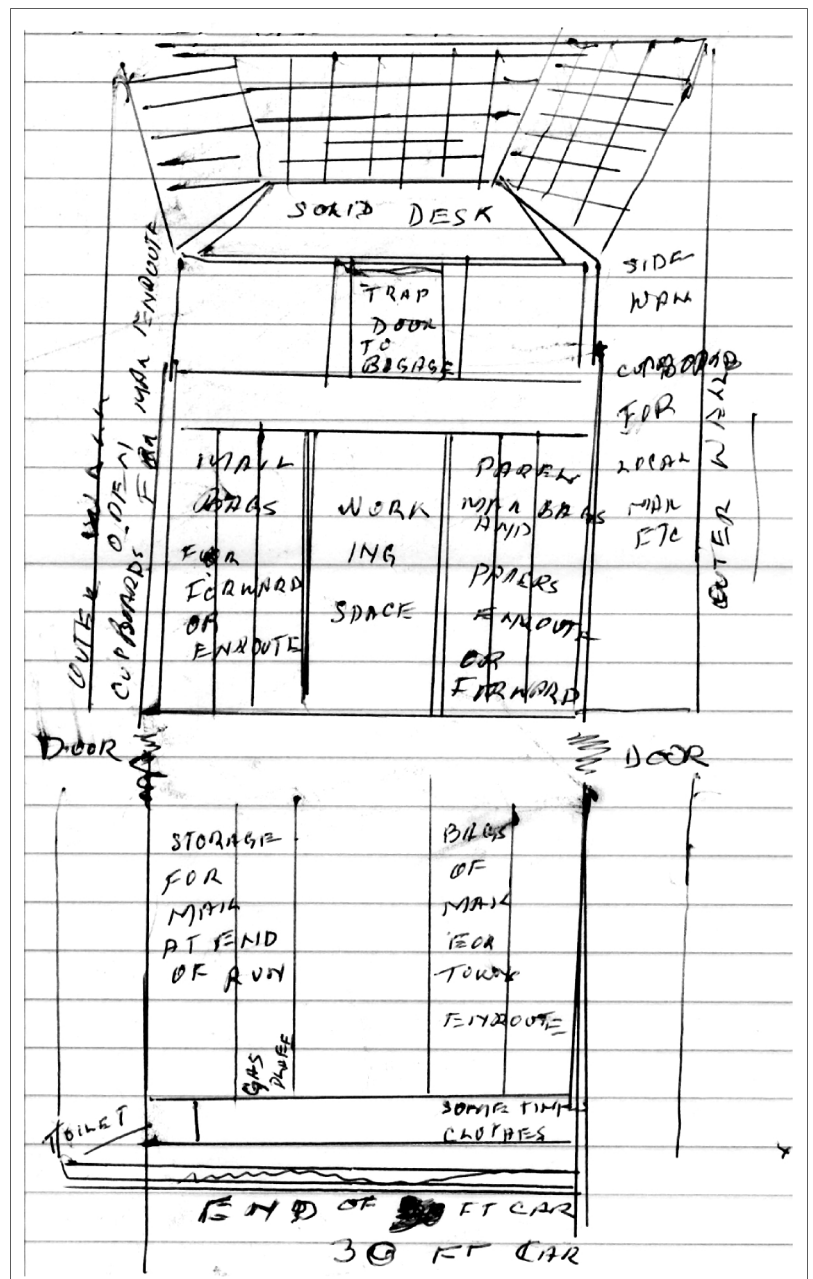 SOLID DESK
TRAP
DOOR
TO
BAGAGE
SIDE
WALL
CUPBOARD
FOR
LOCAL
MAIL
ETC
OUTER WALL
OUTER WALL
CUPBOARDS
FOR MAIL ENROUTE
MAIL
BAGS
FOR
FORWARD
OR
ENROUTE
WORK
ING
SPACE
PARCEL
MAIL BAGS
AND
PAPERS
ENROUTE
OR
FORWARD
DOOR
DOOR
STORAGE
FOR
MAIL
AT END
OF RUN
GAS
BAGS
OF
MAIL
FOR
TOWN
ENROUTE
TOILET
SOME TIME
CLOTHES
END OF FT CAR
30 FT CAR